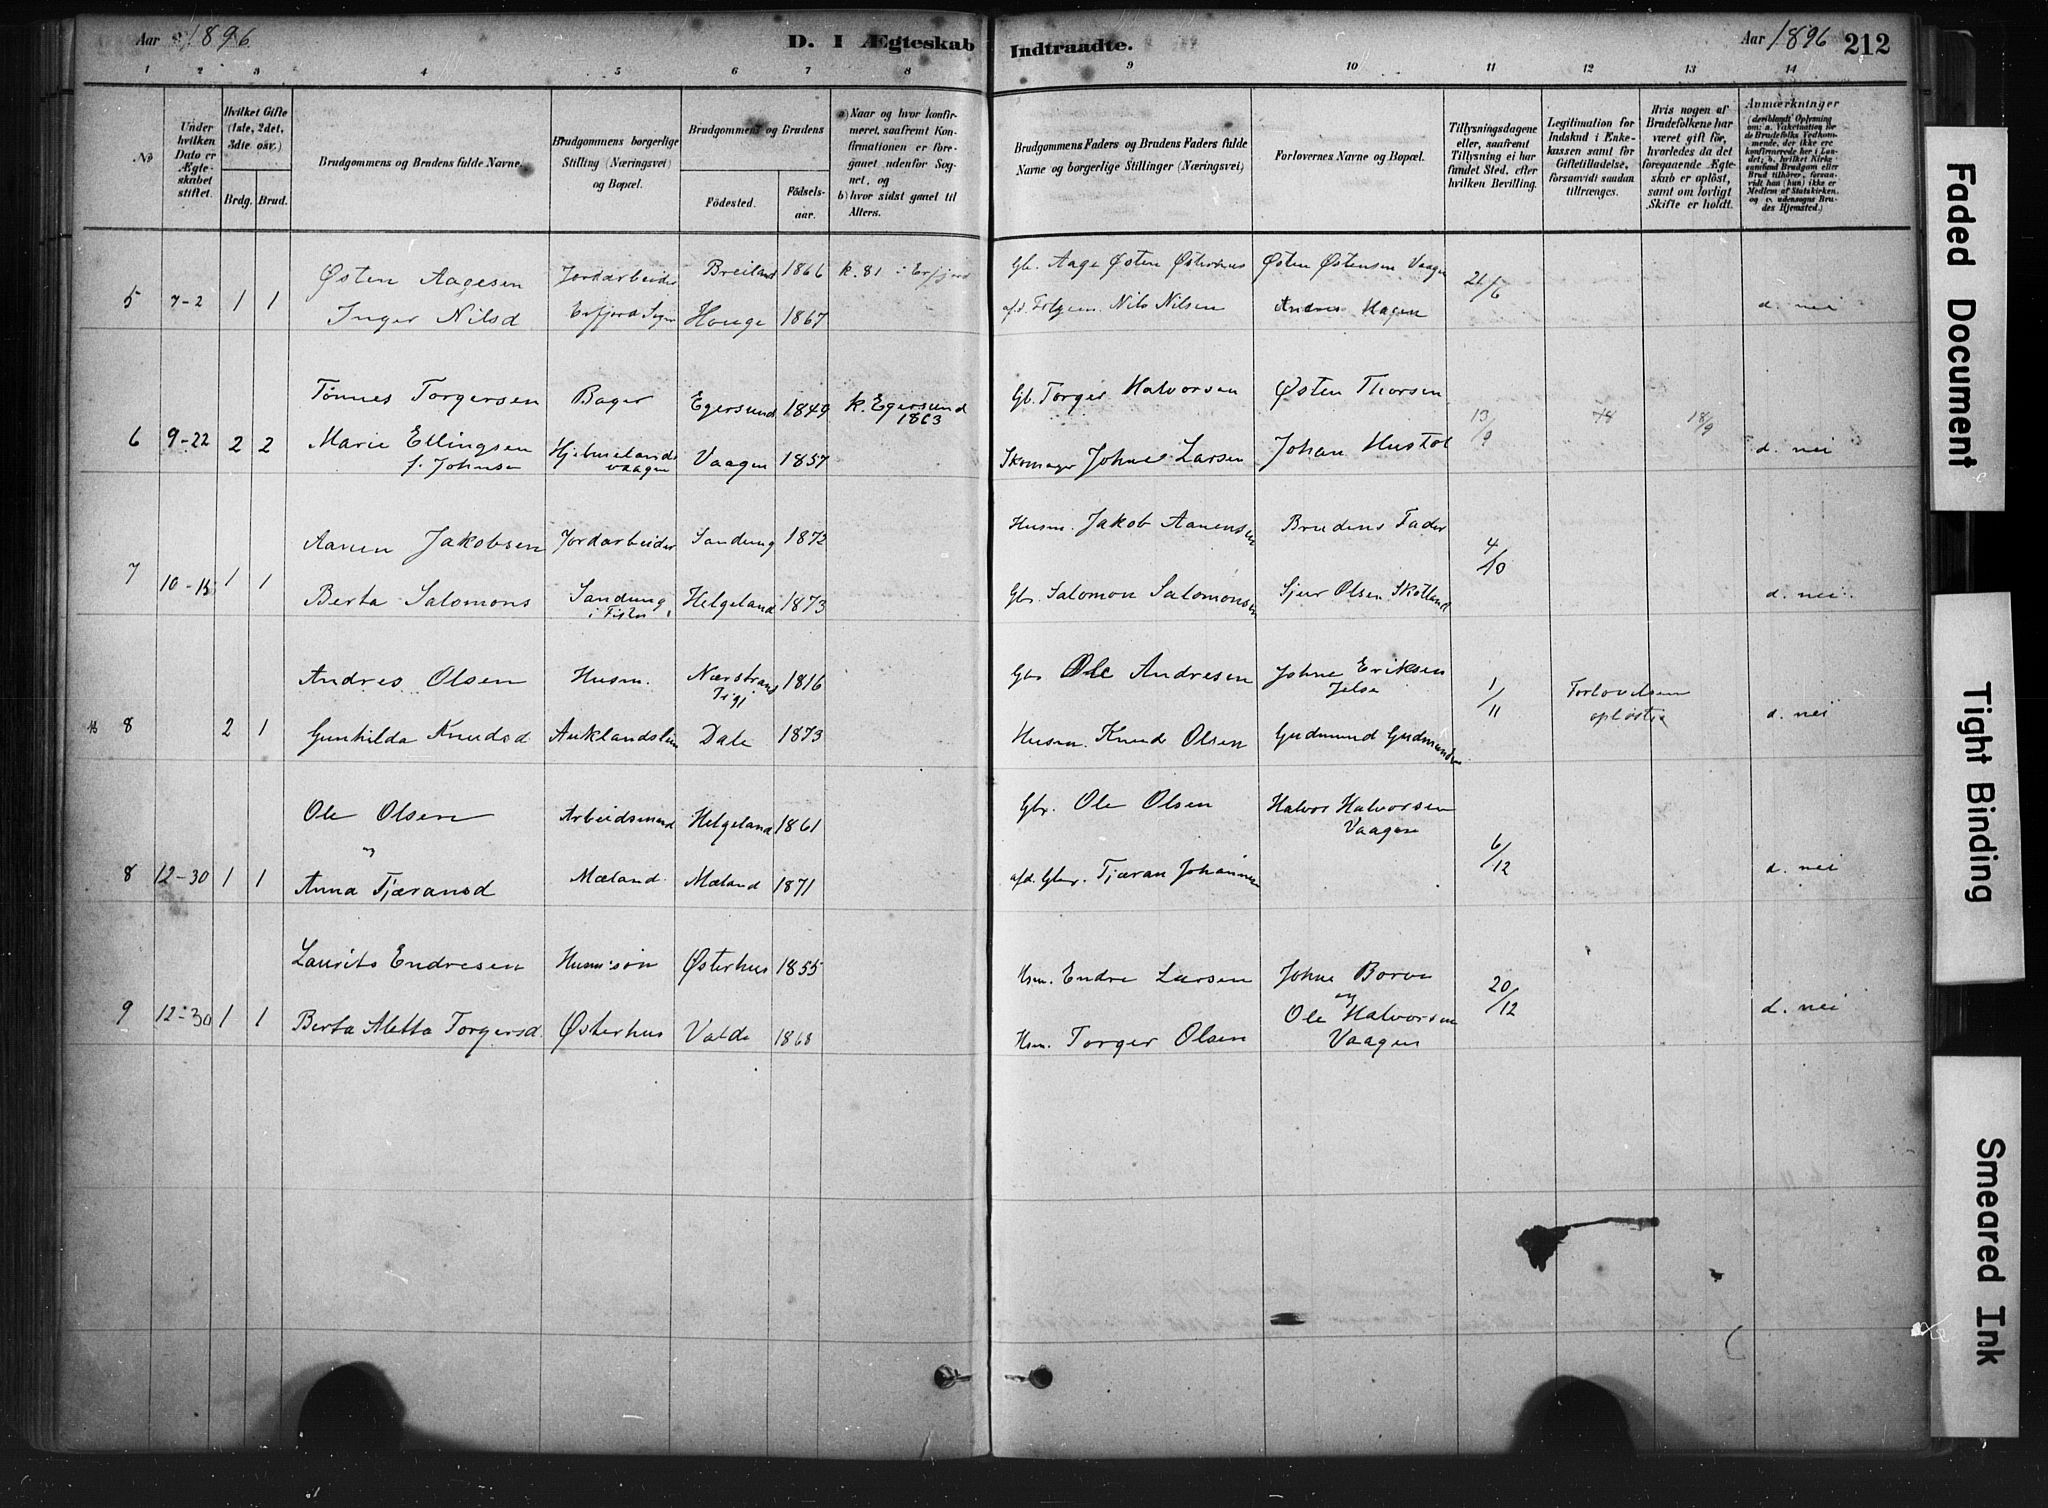 Aar 1896
D. I Ægteskab Indtraadte.
Aar 1896
212
1 2 3 4 5 6 7 8 9 10 11 12 13 14
No
Under hvilken Dato er Ægteskabet stiftet.
Hvilket Gifte (1ste, 2det, 3die osv.)
Brdg. Brud.
Brudgommens og Brudens fulde Navne.
Brudgommens borgerlige Stilling (Næringsvei) og Bopæl.
Brudgommens og Brudens
Födested.
Födselsaar.
a) Naar og hvor konfirmeret, saafremt Konfirmationen er foregaaet udenfor Sognet, og
b) hvor sidst gaaet til Alters.
Brudgommens Faders og Brudens Faders fulde Navne og borgerlige Stillinger (Næringsvei)
Forlovernes Navne og Bopæl.
Tillysningsdagene eller, saafremt Tillysning ei har fundet Sted, efter hvilken Bevilling.
Legitimation for Indskud i Enkekassen samt for Giftetilladelse, forsaavidt saadan tiltrænges.
Hvis nogen af Brudefolkene har været gift för, hvorledes da det foregaaende Ægteskab er oplöst, samt om lovligt Skifte er holdt.
Anmærkninger
(deriblandt Oplysning om: a. Vakcination for de Brudefolks Vedkommende, der ikke ere konfirmerede her i Landet; b. hvilket Kirkesamfund Brudgom eller Brud tilhörer, forsaavidt han (hun) ikke er Medlem af Statskirken. og c. udensogns Brudes Hjemsted.)
Østen Aagesen Jordarbeider Breiland 1866 k. 81 i Erfjord Gb. Aage Østen Østerhus Østen Østensen Vaagen
5 7-2 1 1 Inger Nilsd Erfjord Sogn Houge 1867 Nils Nilsen Andres Hagen 21/6 d. nei
Tønnes Torgersen Bager Egersund 1849 k. Egersund 1863 Gb. Torger Halvorsen Østen Thorsen
6 9-22 2 2 Marie Ellingsen Hjelmelandsvaagen Vaagen 1857 Skomager Johne Larsen Johan Hustol 13/9 18/9 d. nei
f. Johnsen
Aanen Jakobsen Jordarbeider Sandung 1872 Husm. Jakob Aanensen Brudens Fader
7 10-15 1 1 Berta Salomons Sandung i Fister Helgeland 1873 Gbr Salomon Salomonsen Sjur Olsen Skotland 4/10 d. nei
Andres Olsen Husm. Nærstrand 1816 Gbr Ole Andresen Johne Eriksen Jelse
8 2 1 Gunhilda Knudsd Auklandslien Dale 1873 Husm. Knud Olsen Gudmund Gudmundsen 1/11 Forlovelsen opløst d. nei
Ole Olsen Arbeidsmand Helgeland 1861 Gbr. Ole Olsen Halvor Halvorsen Vaagen
og
8 12-30 1 1 Anna Tjæransd Mæland Mæland 1871 afd. Gbr. Tjæran Johannesen 6/12 d. nei
Laurits Endresen Husm.søn Østerhus 1855 Hsm. Endre Larsen Johne Borve
og
9 12-30 1 1 Berta Aletta Torgersd. Østerhus Valde 1868 Hsm. Torger Olsen Ole Halvorsen Vaagen 20/12 d. nei
Faded Document
Tight Binding
Smeared Ink